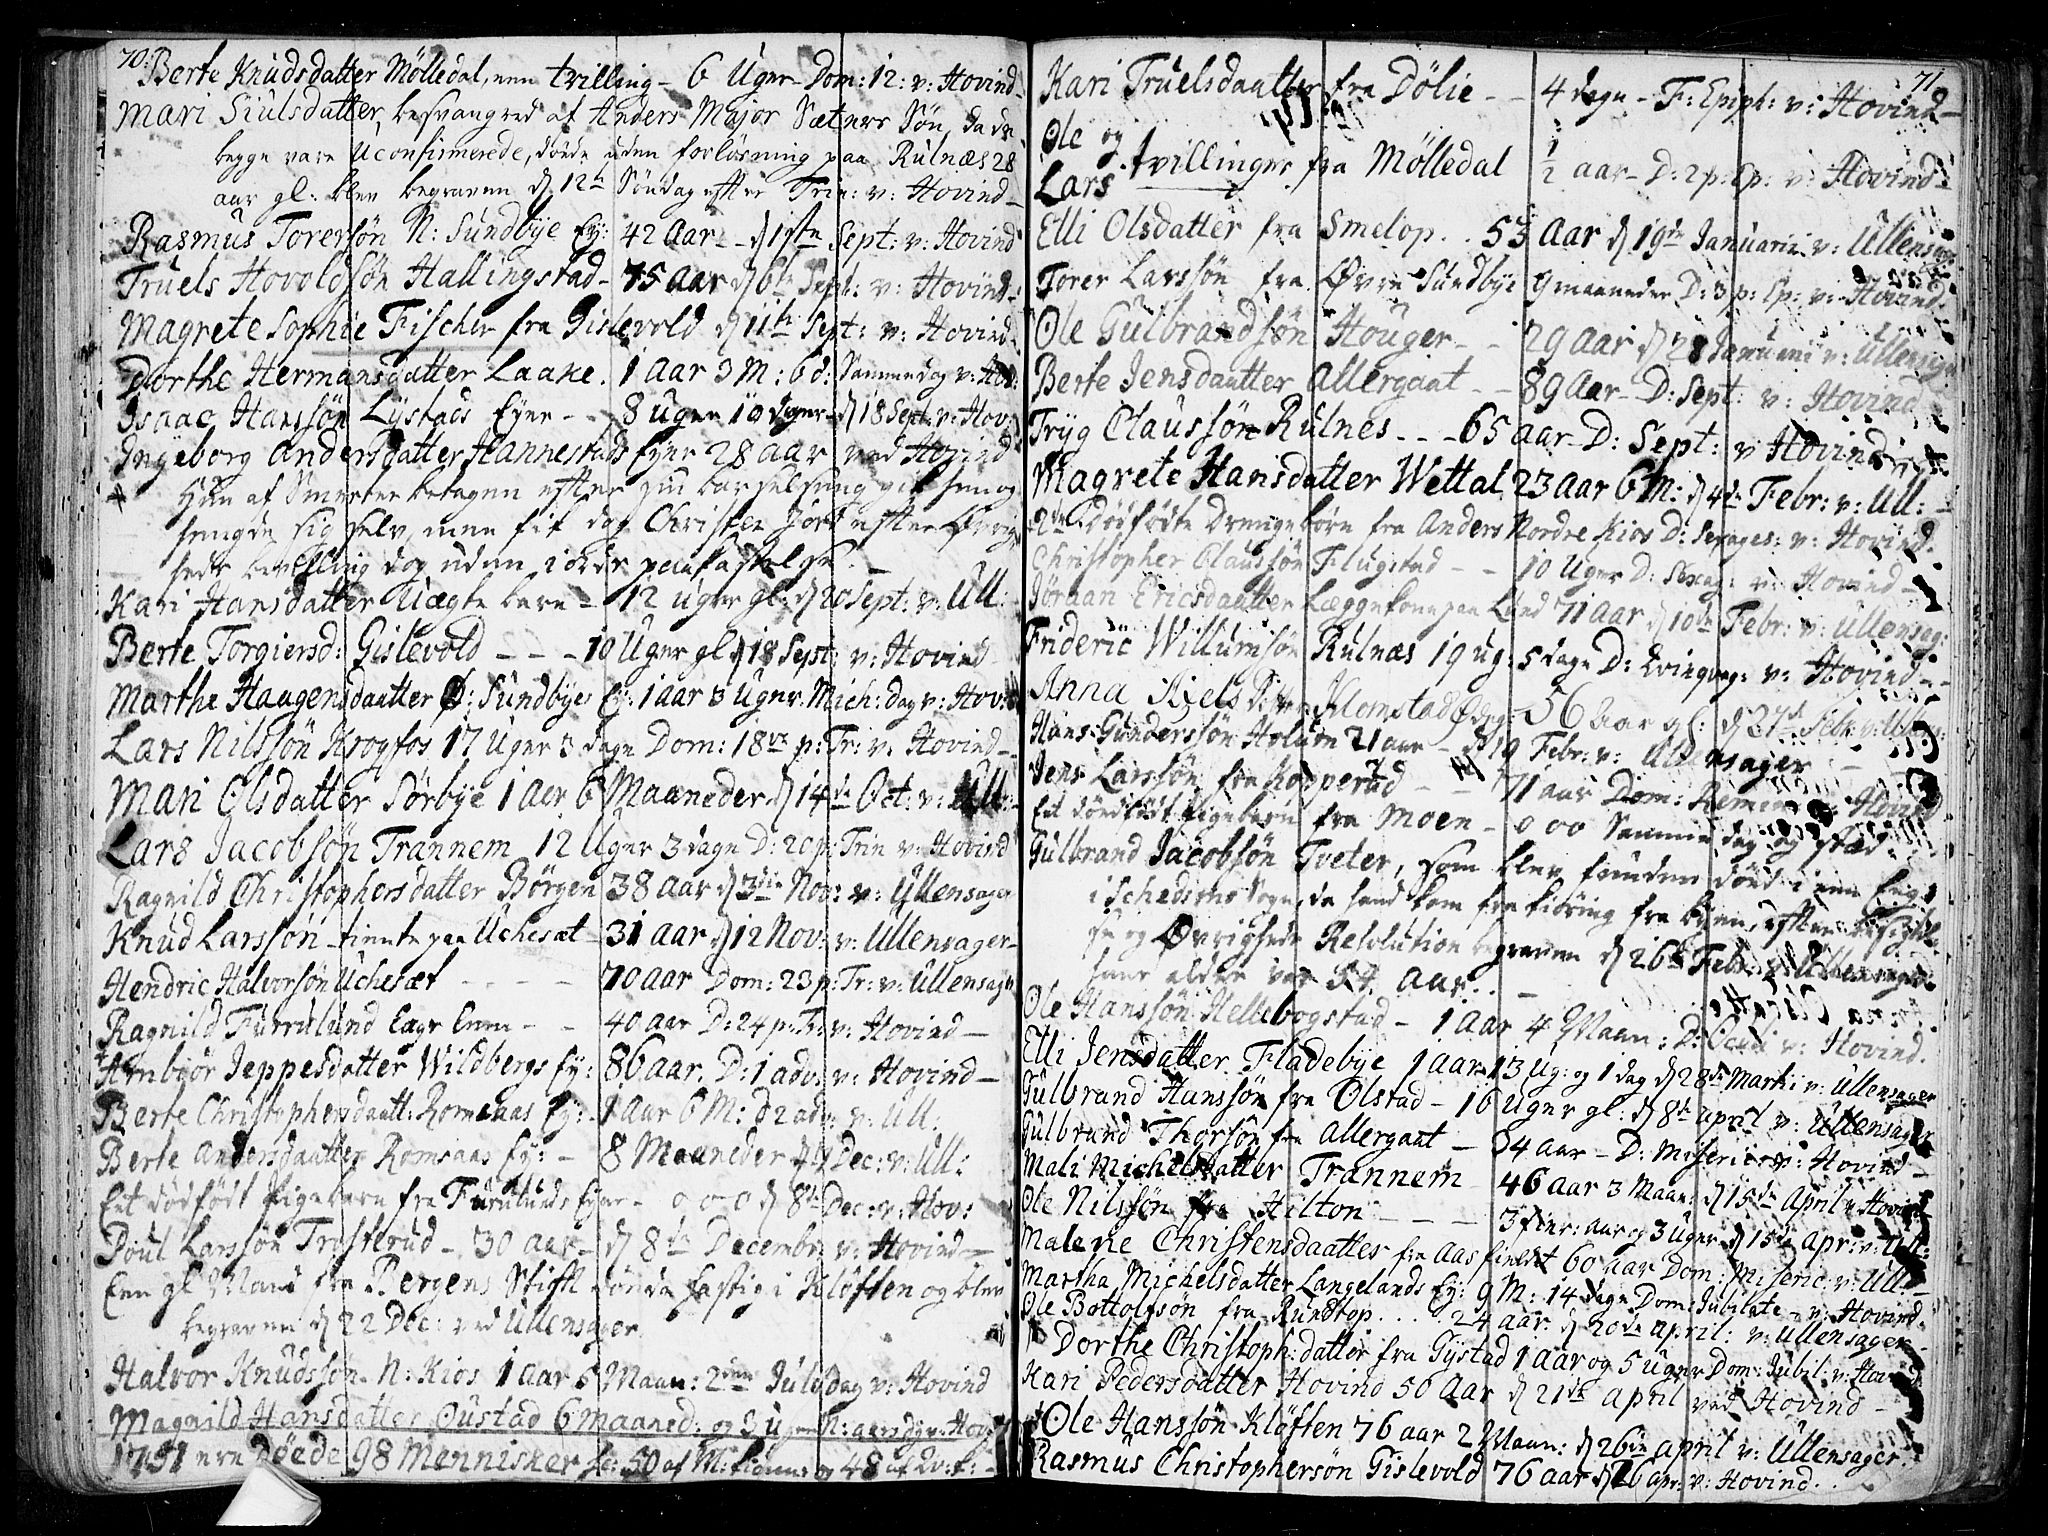 70.
Berte Knudsdatter Mölledal, een tvilling - 6 Uger - Dom: 12: v: Hovind -
Mari Siulsdatter, besvangred af Anders Major Sæters Søn, da de
begge vare Uconfirmerede, döde uden forlösning paa Rulnæs 28
aar gl: blev begraven d 12te Söndag efter Trin: v: Hovind -
Rasmus Torersön N: Sundbye Ey: 42 Aar - d 1ste Sept: v: Hovind
Truels Hovoldsön Hallingstad - 75 aar d 6te Sept: v: Hovind -
Magrete Sophie Fischer fra Gislevold d 11te Sept: v: Hovind -
Dorthe Hermansdatter Laake. 1 aar 3 M: 6 d: Sammendag v: Hov:
Isaac Hanssön Lystads Eyer - 8 uger 10 dager - d 18 Sept: v: Hov:
Ingeborg Andersdatter Hannestads Eyer 28 aar ved Hovind
Hun af Smerter betagen efter sin barselseng gik hen og
hengde sig selv, men fik dog Christen Jord efter Övrig-
heds bevilling dog uden jords paakastelse. -
Kari Hansdatter Uægte barn - 12 uger gl: d 20 Sept: v: Ull:
Berte Torgiersd: Gislevold - - - 10 Uger gl d 18 Sept: v: Hovind
Marthe Haagensdaatter Ø: Sundbyes Ey: 1 aar 3 uger. Mich: dag v: Hov:
Lars Nilssön Krogfos 17 Uger 3 dage Dom: 18 p: Tr: v: Hovind -
Mari Olsdatter Sörbye 1 aar 6 Maaneder d 14de Oct: v: Ull: -
Lars Jacobsön Trannem 12 Uger 3 dage D: 20 p: Trin v: Hovind
Ragnild Christophersdatter Börgen 38 aar d 3die Nov: v: Ullensager
Knud Larssön - tiente paa Uchesæt - 31 aar d 12 Nov: v: Ullensager -
Hendric Halvorsön Uchesæt - - - - 70 aar Dom: 23 p: Tr: v: Ullensager
Ragnild Furrulund Læge Enke - - 40 aar D: 24 p: Tr: v: Hovind -
Ambiör Jeppesdatter Wildbergs Ey: 86 aar. D: 1 adv: v: Hovind -
Berte Christophersdaatt: Romsaas Ey: - 1 aar 6 M: D 2 adv: v: Ull.
Berte Andersdaatter Romsaas Ey: - 8 Maaneder d 9 Dec: v: Ull:
Eet dödfödt Pigebarn fra Furulunds Eyer - 0 0 0 d 8de Dec: v: Hov:
Poul Larssön Trösterud - 30 aar - d 8de Decembr v: Hovind -
Een gl Mand fra Bergens Stift döde hastig i Klöften og blev
begraven d 22 Dec: ved Ullensager
Halvor Knudssön N: Kios 1 aar 6 Maan: 2den Juledag v: Hovind
Magnild Hansdatter Oustad 6 maaned: og 3 uger N: aarsdag v: Hov:
1751 ere Döede 98 Mennisker sc: 50 af M: kiönn: og 48 af Qv: k: -
71.
Kari Truelsdaatter fra Dölie - - 4 dage - F: Epiph: v: Hovind -
Ole og
Lars tvillinger fra Mölledal 1/2 aar - D: 2 p: Ep: v: Hovind -
Elli Olsdatter fra Smelop . . 55 Aar d 19de Januarii v: Ullensag:
Torer Larssön fra Øvre Sundbye 9 maaneder D: 3 p: Ep: v: Hovind.
Ole Gulbrandsön Houger - - 29 aar d 28 Januarii v: Ullensager
Berte Jensdaatter Allergaat - - 89 aar - D: Sept: v: Hovind
Tryg Claussön Rulnes - - - 65 aar D: Sept: v Hovind
Magrete Hansdatter Wettal 23 aar 6 M: d 4de Febr: v: Ull: -
2de dödfödte Drengebörn fra Anders Nordre Kios D: Sexages: v: Hovind.
Christopher Claussön Flugstad - - 10 Uger D: Sexag: v: Hovind -
Jöraan Ericsdaatter Læggekone paa Lund 71 aar d 10de Febr: v: Ullensag:
Frideric Willumsön Rulnæs 19 ug: 5 dage D: Qvinqvag: v: Hovind - -
Anna Axels Datter Klomstad Ødeg: 56 Aar gl: d 27de Febr: v: Ullens:
Hans Gunderssön Holum 21 aar - d 19 Febr: v: Ullensager
Jens Larssön fra Kopperud - - 71 aar Dom: Remin: v: Hovind
Eet dödfödt Pigebarn fra Moen - 0 0 0 Samme dag og stæd
Gulbrand Jacobsön Tveter, som blev funden död i een Eng
i Schedsmo Sogn, da hand kom fra kiöring fra byen, efter
og Øvrigheds Resolution begraven d 26de Febr: v: Ullensager
hans alder var 54 aar. . -
Ole Hanssön Hellebogstad - 1 aar 4 Maan: D: Oculi v: Hovind.
Elli Jensdatter Fladebye 1 aar 13 Ug: og 1 dag d 28de Martii v: Ullensager
Gulbrand Hanssön fra Olstad - 16 Uger gl: d 8de april v: Ullensager
Gulbrand Thorsön fra Allergaat - 34 aar - D: Misericor: v: Hovind -
Mali Michelsdatter Trannem - 46 aar 3 Maan: d 15de April v Hovind -
Ole Nilssön fra Hilton - - - 3 fier: aar og 3 uger d 15de Apr: v: Ull:
Malene Christensdaatter fra Aas fieldet 60 aar Dom: Miseric: v: Ull: -
Martha Michelsdatter Langelands Ey: 9 M: 14 dage Dom: Jubilate - v: Hovind.
Ole Bottolfsön fra Rundtop. . . . 24 aar. d 20de april: v: Ullensager -
Dorthe Christoph: datter fra Gystad 1 aar og 5 uger Dom: Jubil: v: Hovind
Kari Pedersdatter Hovind 50 Aar d 21de April ved Hovind -
Ole Hanssön Klöften 76 aar 2 Maan: d 26de april v: Ullensager.
Rasmus Christophersön Gislevold 76 aar d 26 apr: v: Hovind. .